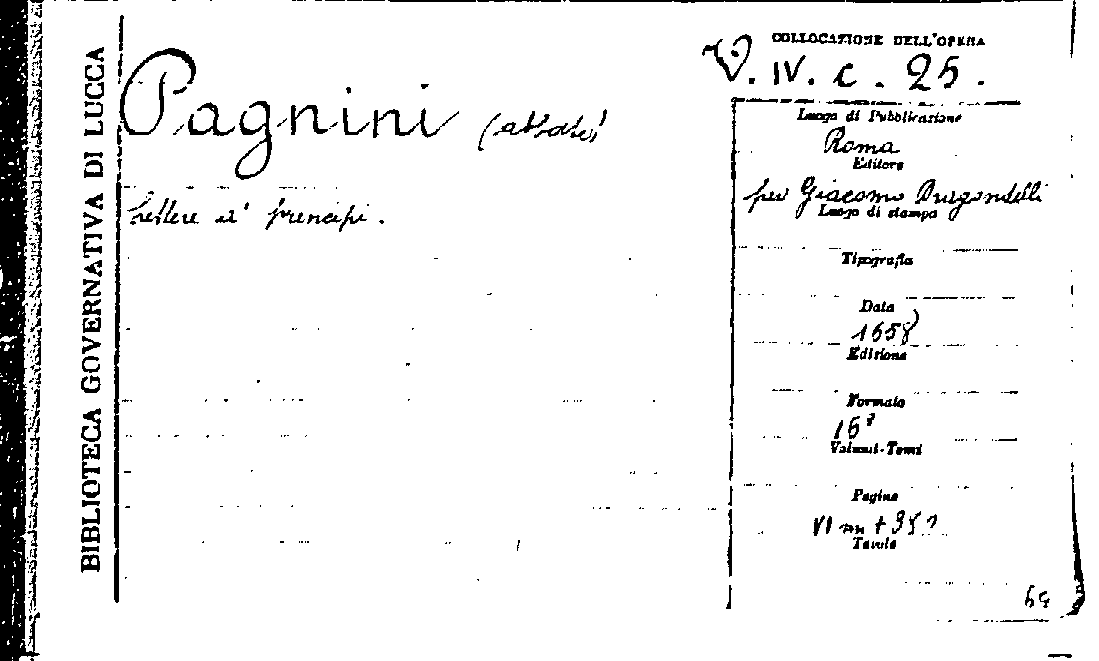 BIBLIOTECA GOVERNATIVA DI LUCCA
Pagnini (abbate)
Lettere a' principi.
COLLOCAZIONE DELL'OPERA
V. IV. c. 25.
Luogo di Pubblicazione
Roma
Editore
per Giacomo Dragondelli
Luogo di stampa
Tipografia
Data
1658
Edizione
Formato
16°
Volumi-Tomi
Pagine
VI nn +
Tavole